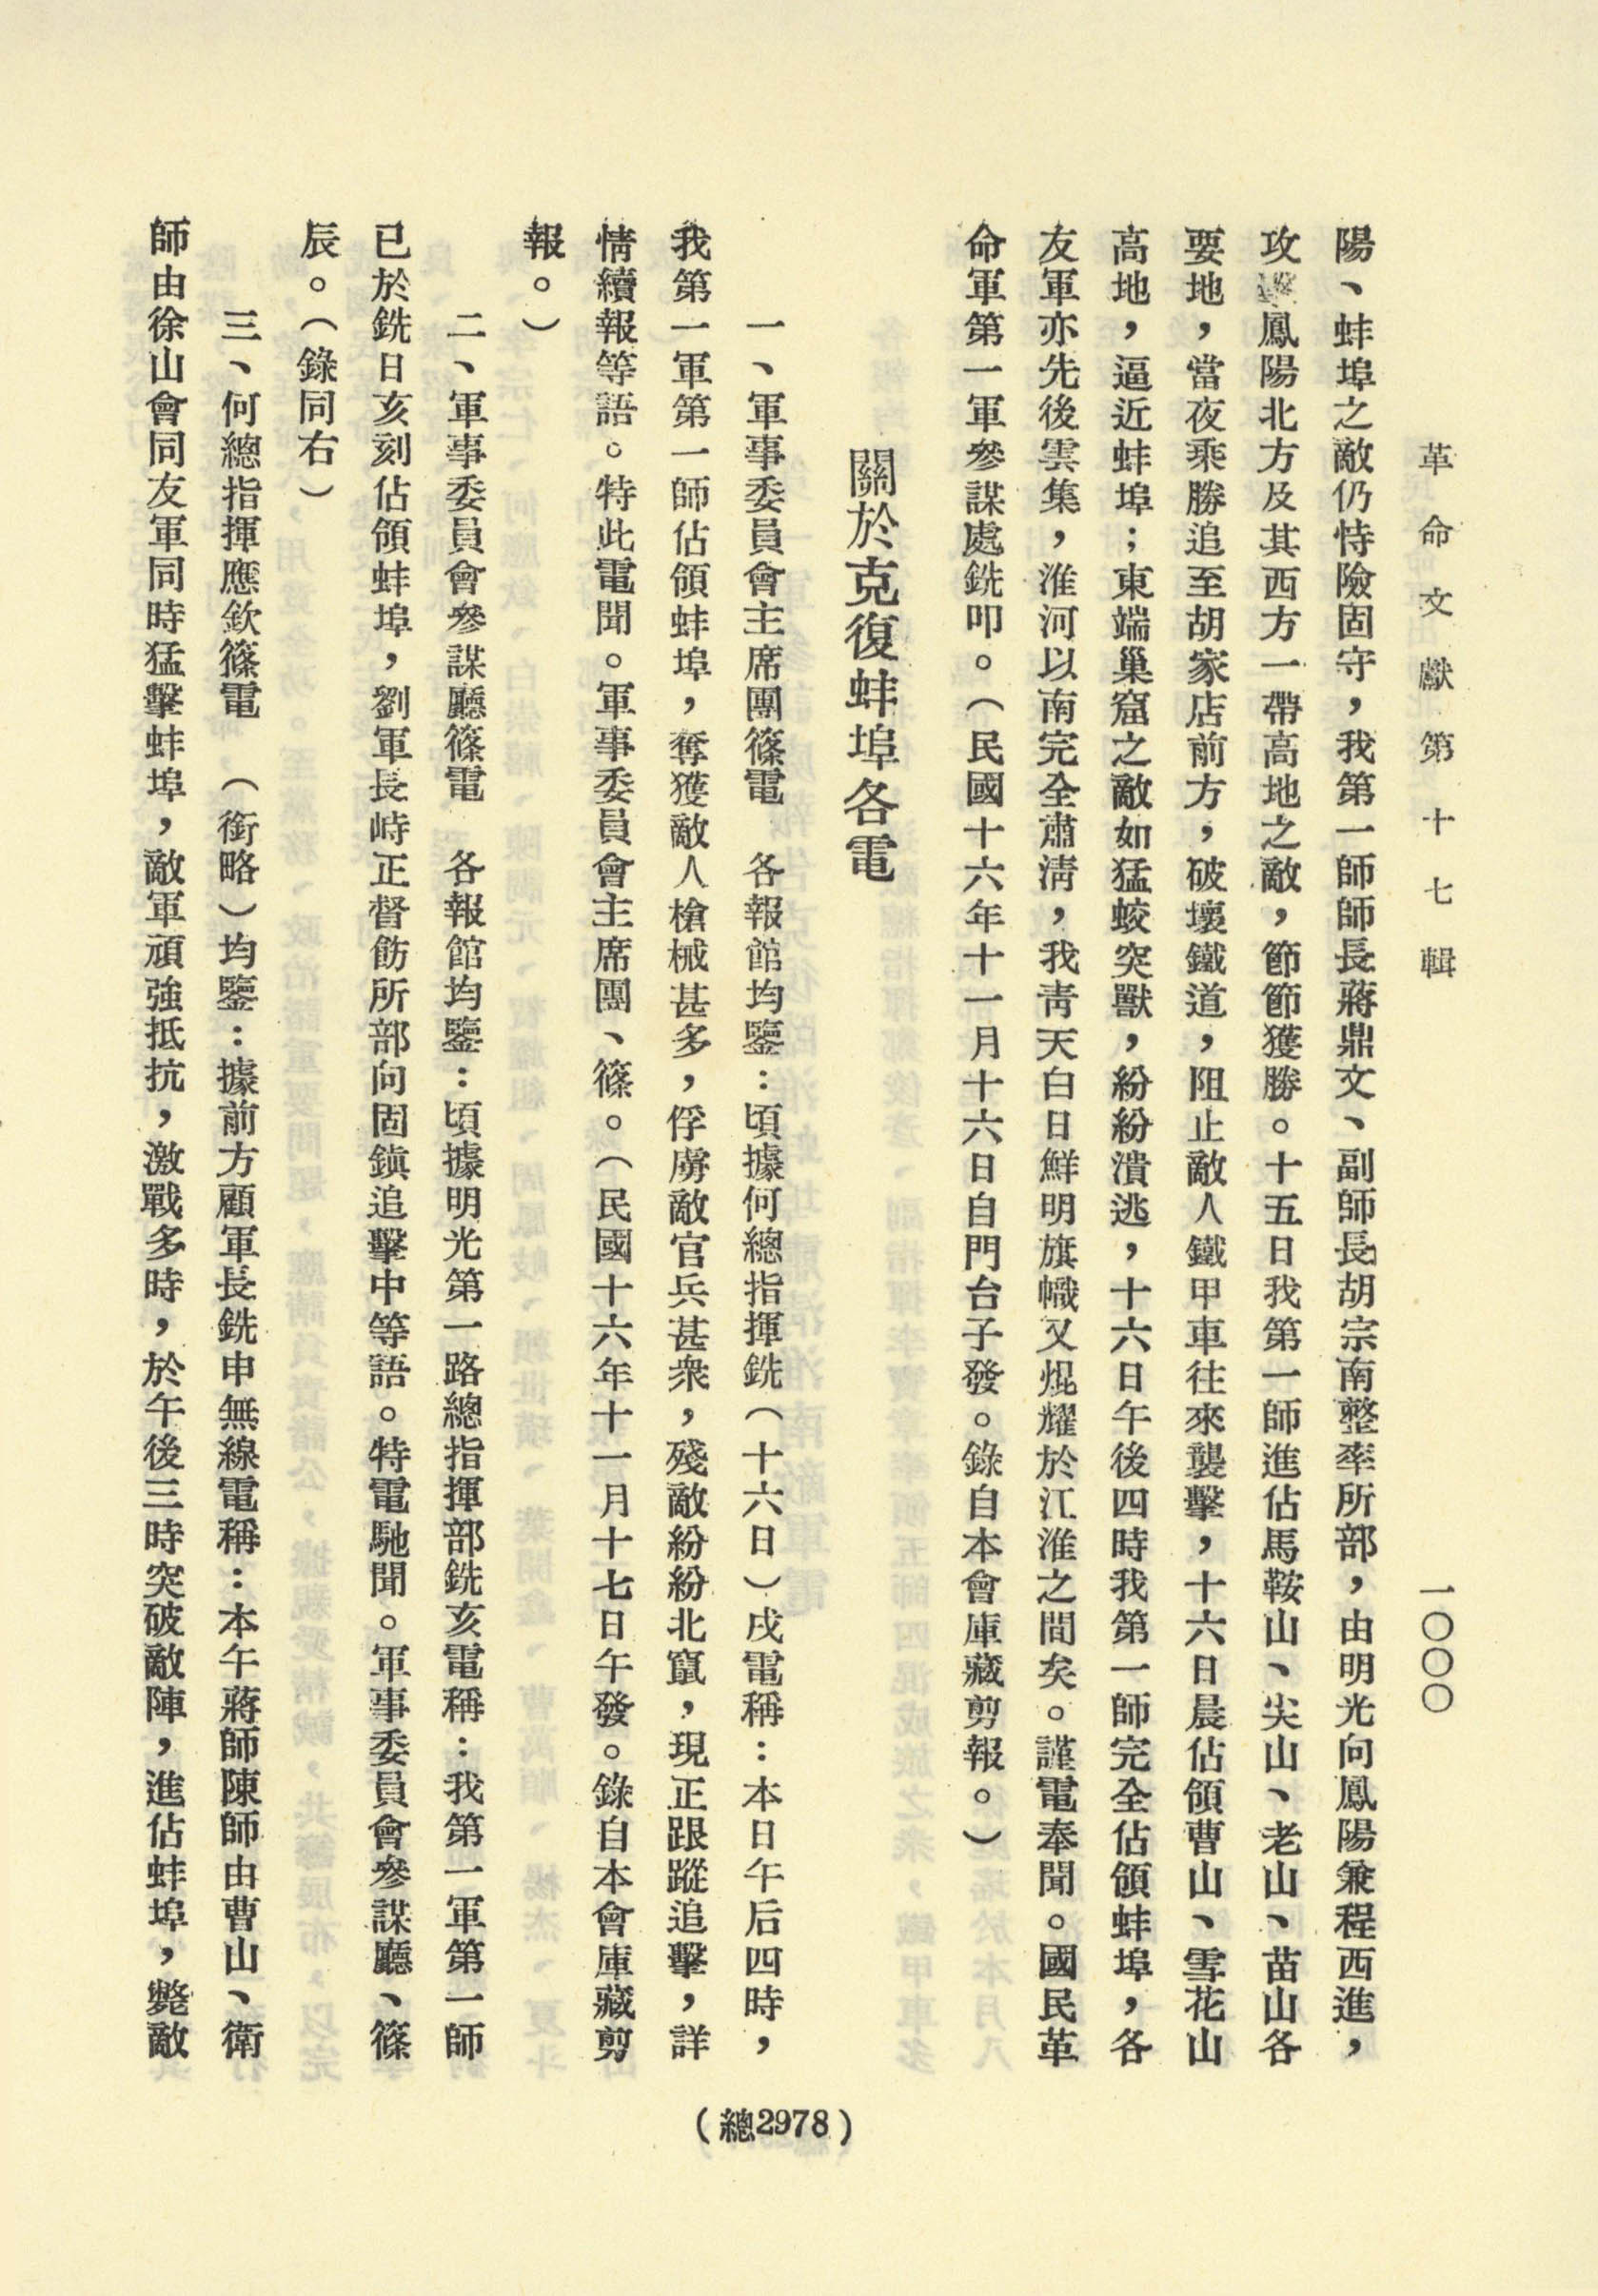 革命文獻第十七輯
一〇〇〇
陽、蚌埠之敵仍恃險固守，我第一師師長蔣鼎文、副師長胡宗南整率所部，由明光向鳳陽兼程西進，
攻擊鳳陽北方及其西方一帶高地之敵，節節獲勝。十五日我第一師進佔馬鞍山、尖山、老山、苗山各
要地，當夜乘勝追至胡家店前方，破壞鐵道，阻止敵人鐵甲車往來襲擊，十六日晨佔領曹山、雪花山
高地，逼近蚌埠；東端巢窟之敵如猛蛟突獸，紛紛潰逃，十六日午後四時我第一師完全佔領蚌埠，各
友軍亦先後雲集，淮河以南完全肅清，我靑天白日鮮明旗幟又焜耀於江淮之間矣。謹電奉聞。國民革
命軍第一軍參謀處銑叩。（民國十六年十一月十六日自門台子發。錄自本會庫藏剪報。）
關於克復蚌埠各電
一、軍事委員會主席團篠電　各報館均鑒：頃據何總指揮銑（十六日）戌電稱：本日午后四時，
我第一軍第一師佔領蚌埠，奪獲敵人槍械甚多，俘虜敵官兵甚衆，殘敵紛紛北竄，現正跟蹤追擊，詳
情續報等語。特此電聞。軍事委員會主席團、篠。（民國十六年十一月十七日午發。錄自本會庫藏剪
報。）
二、軍事委員會參謀廳篠電　各報館均鑒：頃據明光第一路總指揮部銑亥電稱：我第一軍第一師
已於銑日亥刻佔領蚌埠，劉軍長峙正督飭所部向固鎭追擊中等語。特電馳聞。軍事委員會參謀廳、篠
辰。（錄同右）
三、何總指揮應欽篠電　（銜略）均鑒：據前方顧軍長銑申無線電稱：本午蔣師陳師由曹山、衛
師由徐山會同友軍同時猛擊蚌埠，敵軍頑強抵抗，激戰多時，於午後三時突破敵陣，進佔蚌埠，斃敵
（總2978）